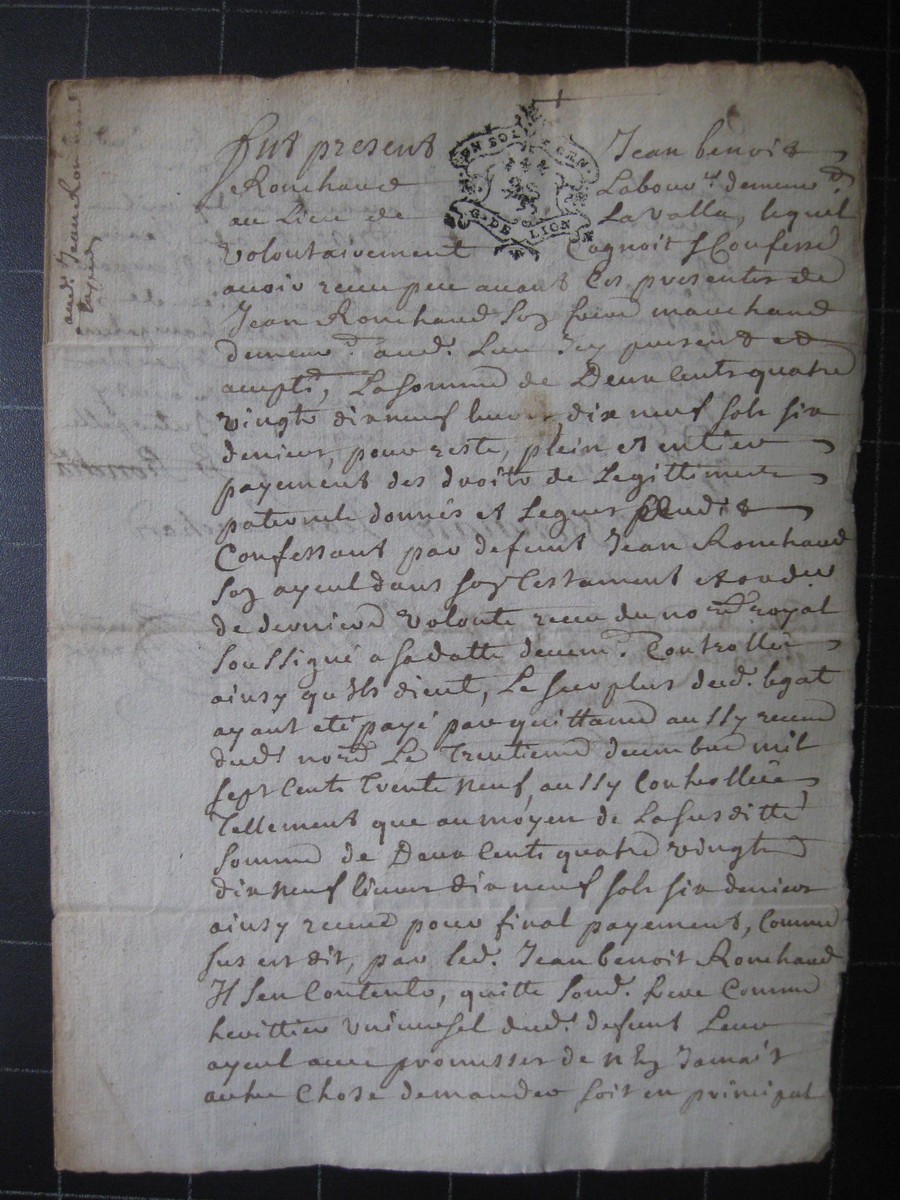 audt Jean Ronchaud
EN SOL GEN
G. DE LION
fut present Jean benoit
Ronchaud Labour. demeur.t
au Lieu de LaValla, lequel
volontairement Cognoit & Confesse
avoir receu peu avant Ces presentes de
Jean Ronchaud Son frere marchand
demeur.t aud. Lieu Icy present et
accept.t, La Somme de Deux Cents quatre
vingts dix neuf livres, dix neuf sols six
deniers, pour reste, plein et entier
payement des droits de Legittime
paternele donnés et Legués audit
Confessant par defunt Jean Ronchaud
Son ayeul dans son Testament et ordre
de derniere volonte receu du no.re royal
Soussigné a sa datte deuem.t Controllée
ainsy qu'ils dient, Le surplus dud. legat
ayant eté payé par quittance aussy receue
dud. no.re Le Trentieme decembre mil
sept Cents Trente neuf, aussy Controllée
Tellement que au moyen de La susditte
Somme de Deux Cents quatre vingts
dix neuf livres dix neuf sols six deniers
ainsy receue pour final payement, Comme
sus est dit, par led. Jean benoit Ronchaud
Il s'en Contente, quitte sond. frere Comme
herittier universel dud. defunt Leur
ayeul avec promesses de n'en Jamais
autre Chose demander soit en principal